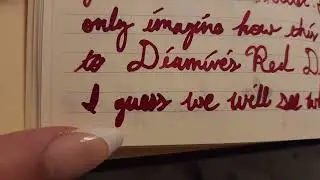 only imagine how this
to Diamine's Red D
I guess we will see wh